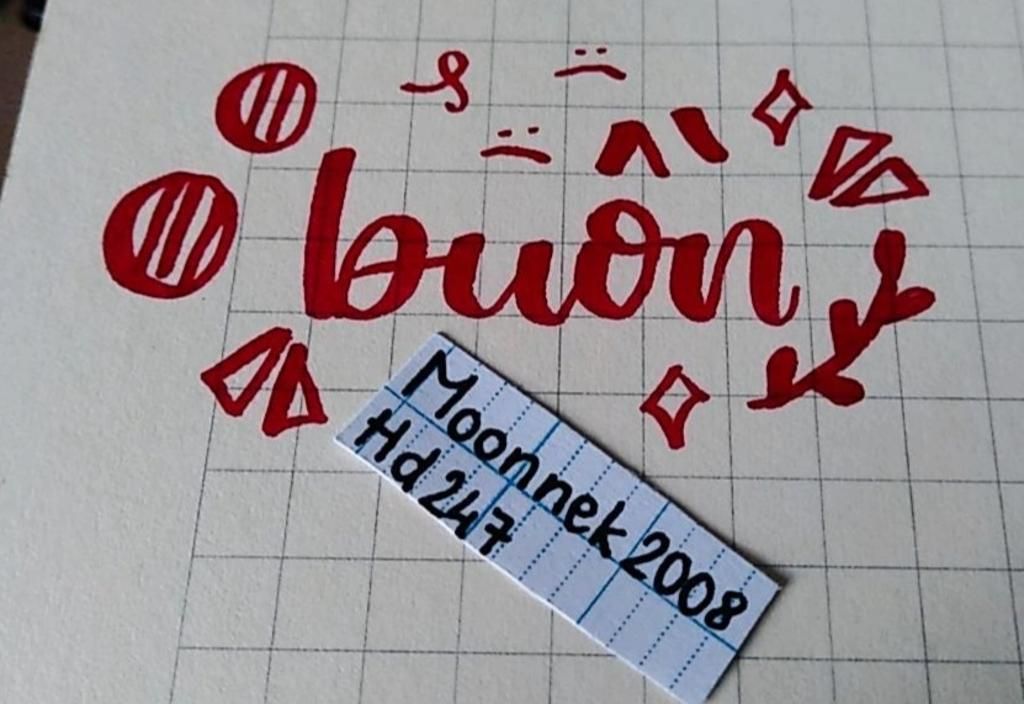 buồn
Moonnek2008
Hd247